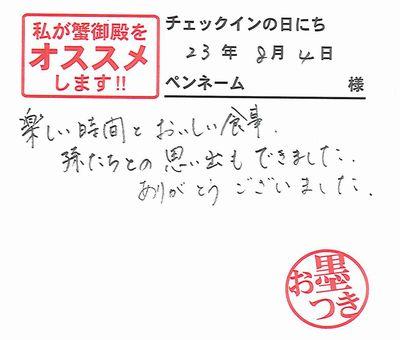 私が蟹御殿を
オススメ
します!!
チェックインの日にち
23年 8月 4日
ペンネーム 様
楽しい時間とおいしい食事.
孫たちとの思い出もできました.
ありがとうございました.
お墨つき